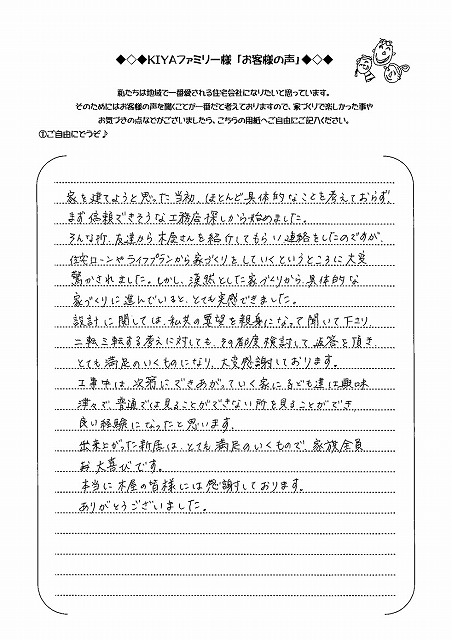 ◆◇◆KIYAファミリー様「お客様の声」◆◇◆
私たちは地域で一番愛される住宅会社になりたいと思っています。
そのためにはお客様の声を聞くことが一番だと考えておりますので、家づくりで楽しかった事や
お気づきの点などがございましたら、こちらの用紙へご自由にご記入ください。
①ご自由にどうぞ♪
家を建てようと思った当初、ほとんど具体的なことを考えておらず、
まず信頼できそうな工務店探しから始めました。
そんな所、友達から木屋さんを紹介してもらい連絡をしたのですが、
住宅ローンやライフプランから家づくりをしていくというところに大変
驚かされました。しかし、漠然とした家づくりから、具体的な
家づくりに進んでいると、とても実感できました。
設計に関しては、私共の要望を親身になって聞いて下さり、
二転三転する考えに対しても、その都度検討して返答を頂き
とても満足のいくものになり、大変感謝しております。
工事中は、次第にできあがっていく家に子ども達は興味
津々で、普通では見ることができない所を見ることができ、
良い経験になったと思います。
出来上がった新居は、とても満足のいくもので、家族全員
お大喜びです。
本当に木屋の皆様には感謝しております。
ありがとうございました。